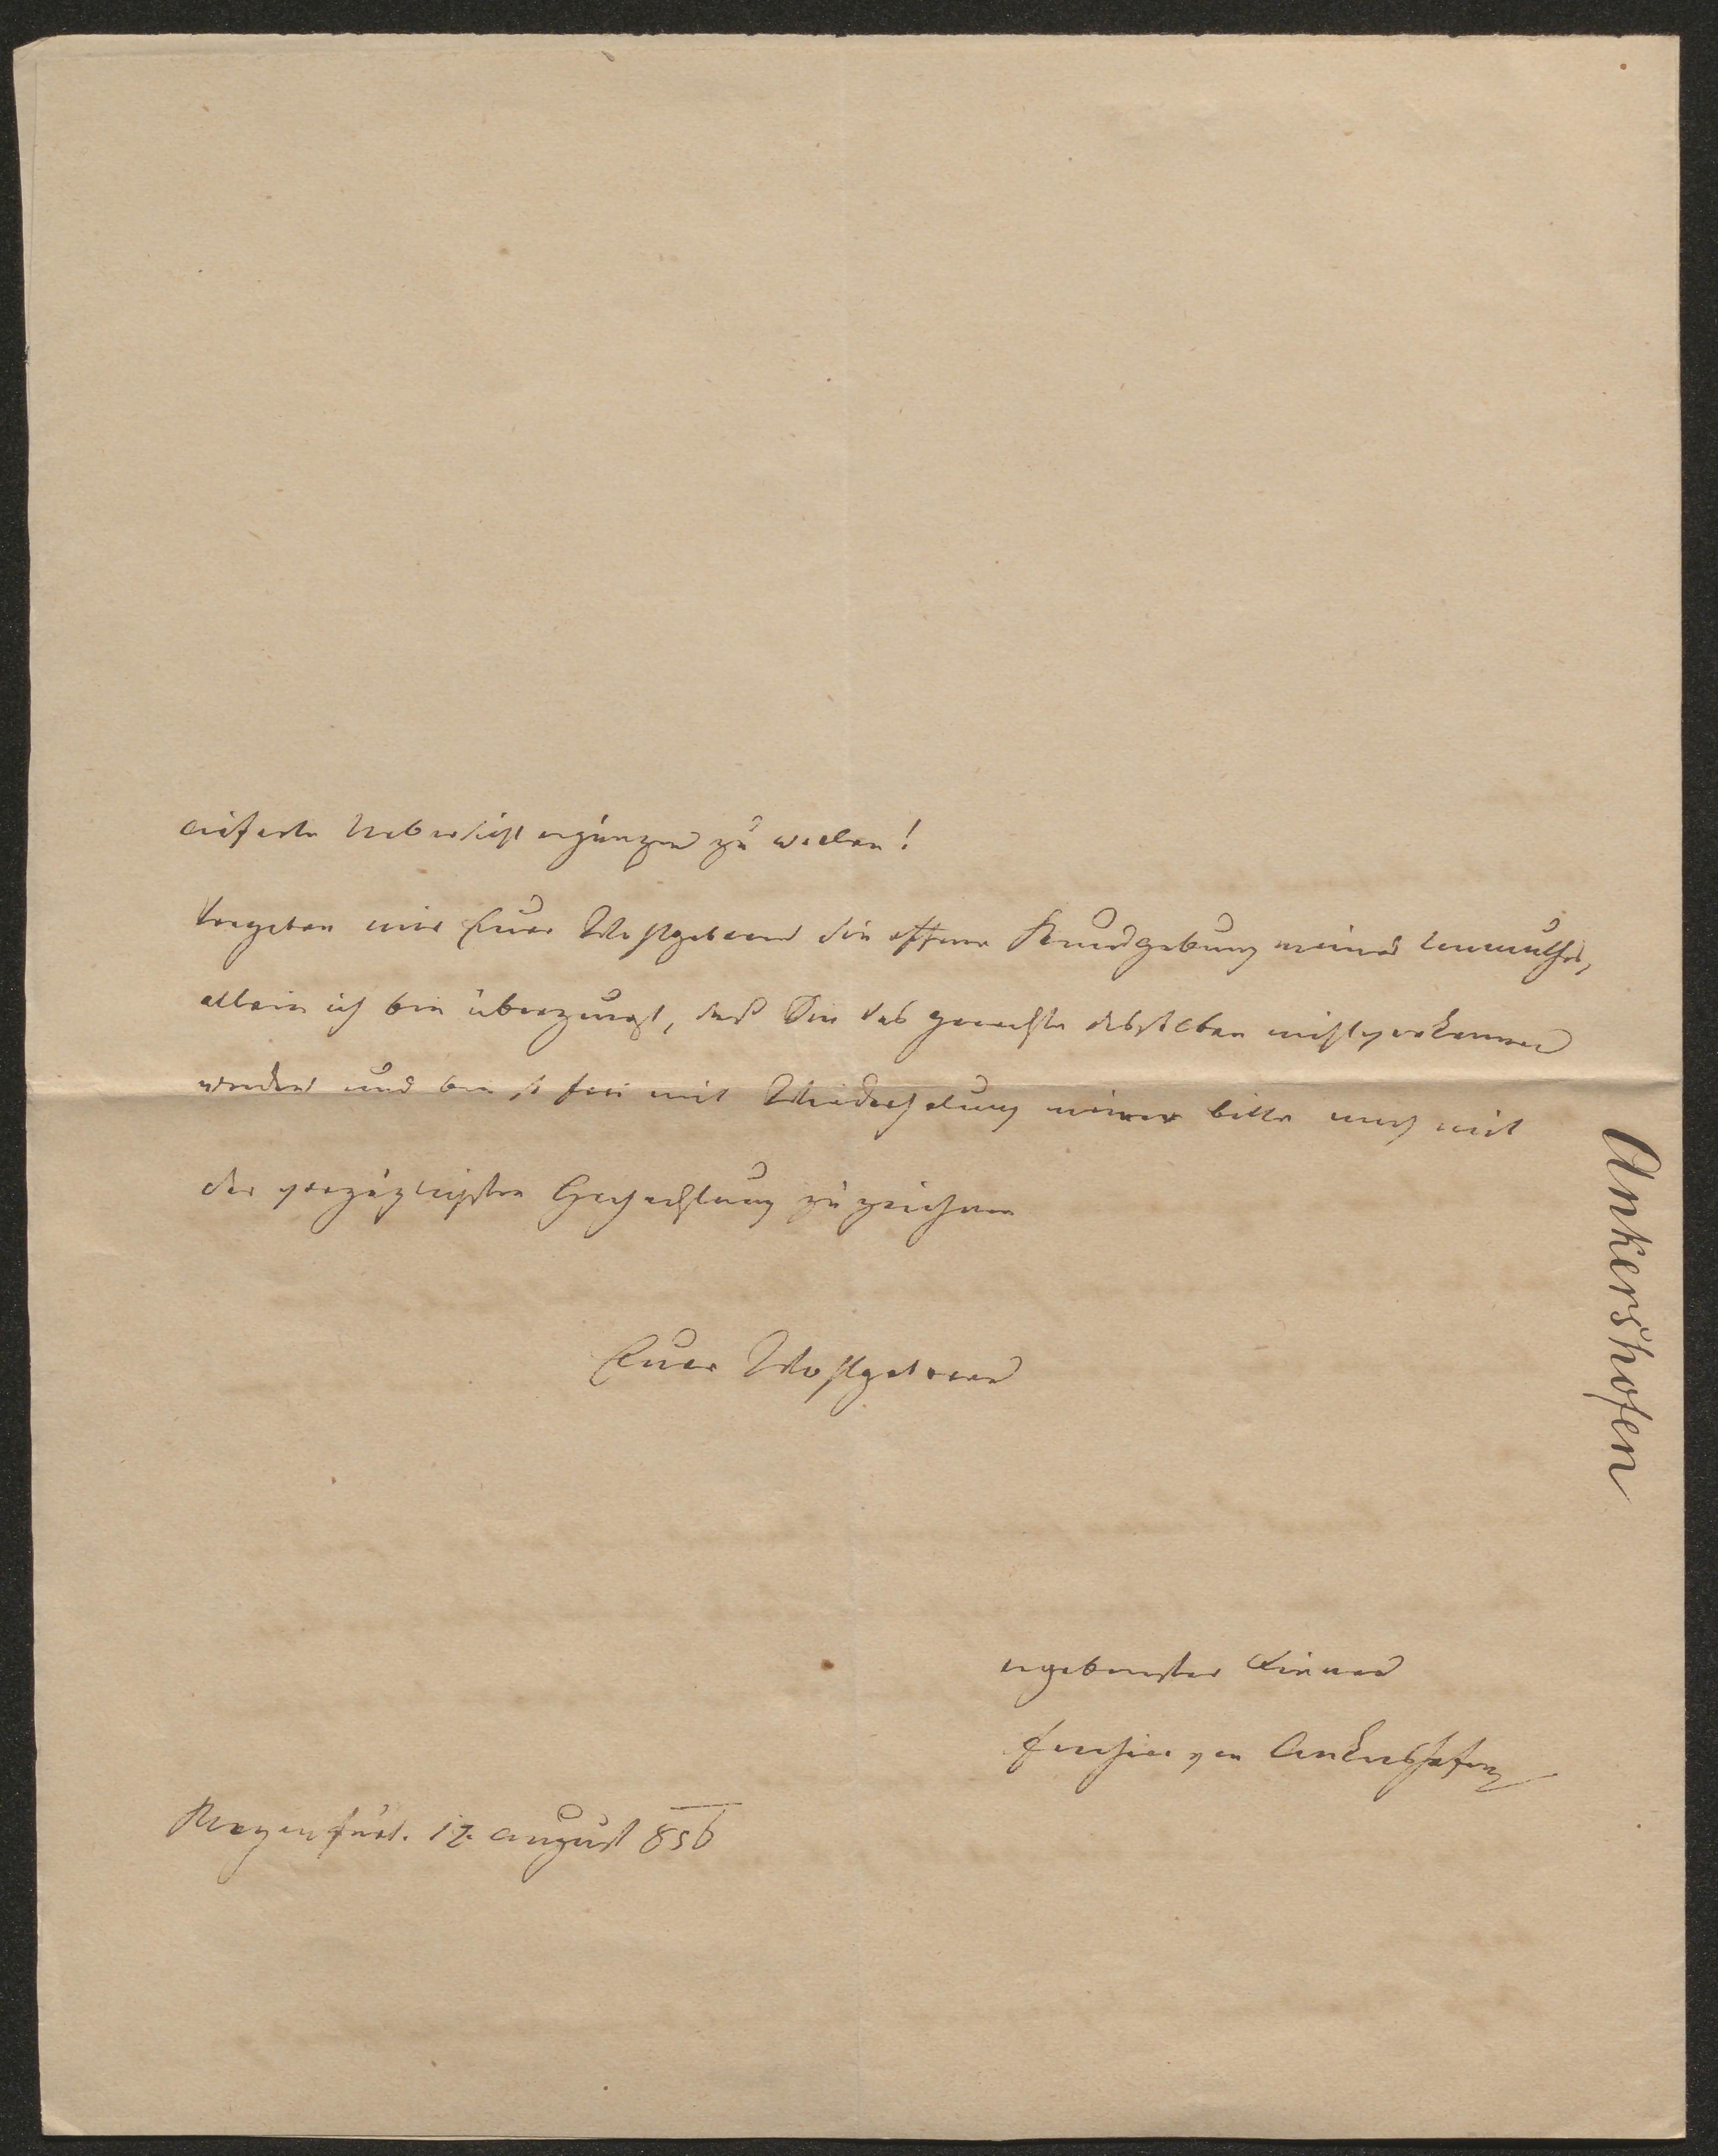 Uebersicht ergänzen zu wollen!
Vergeben mir Euer Wohlgeboren die offene Kundgebung meines Unmuthes,
allein ich bin überzeugt, daß Sie das gerechte desselben nicht verkennen
werden und bin so frei mit Wiederholung meiner Bitte mich mit
der vorzüglichsten Hochachtung zu zeichnen
Euer Wohlgeboren
ergebenster Diener
Freiherr von Ankershofen
Klagenfurt. 17. August 856
Ankershofen